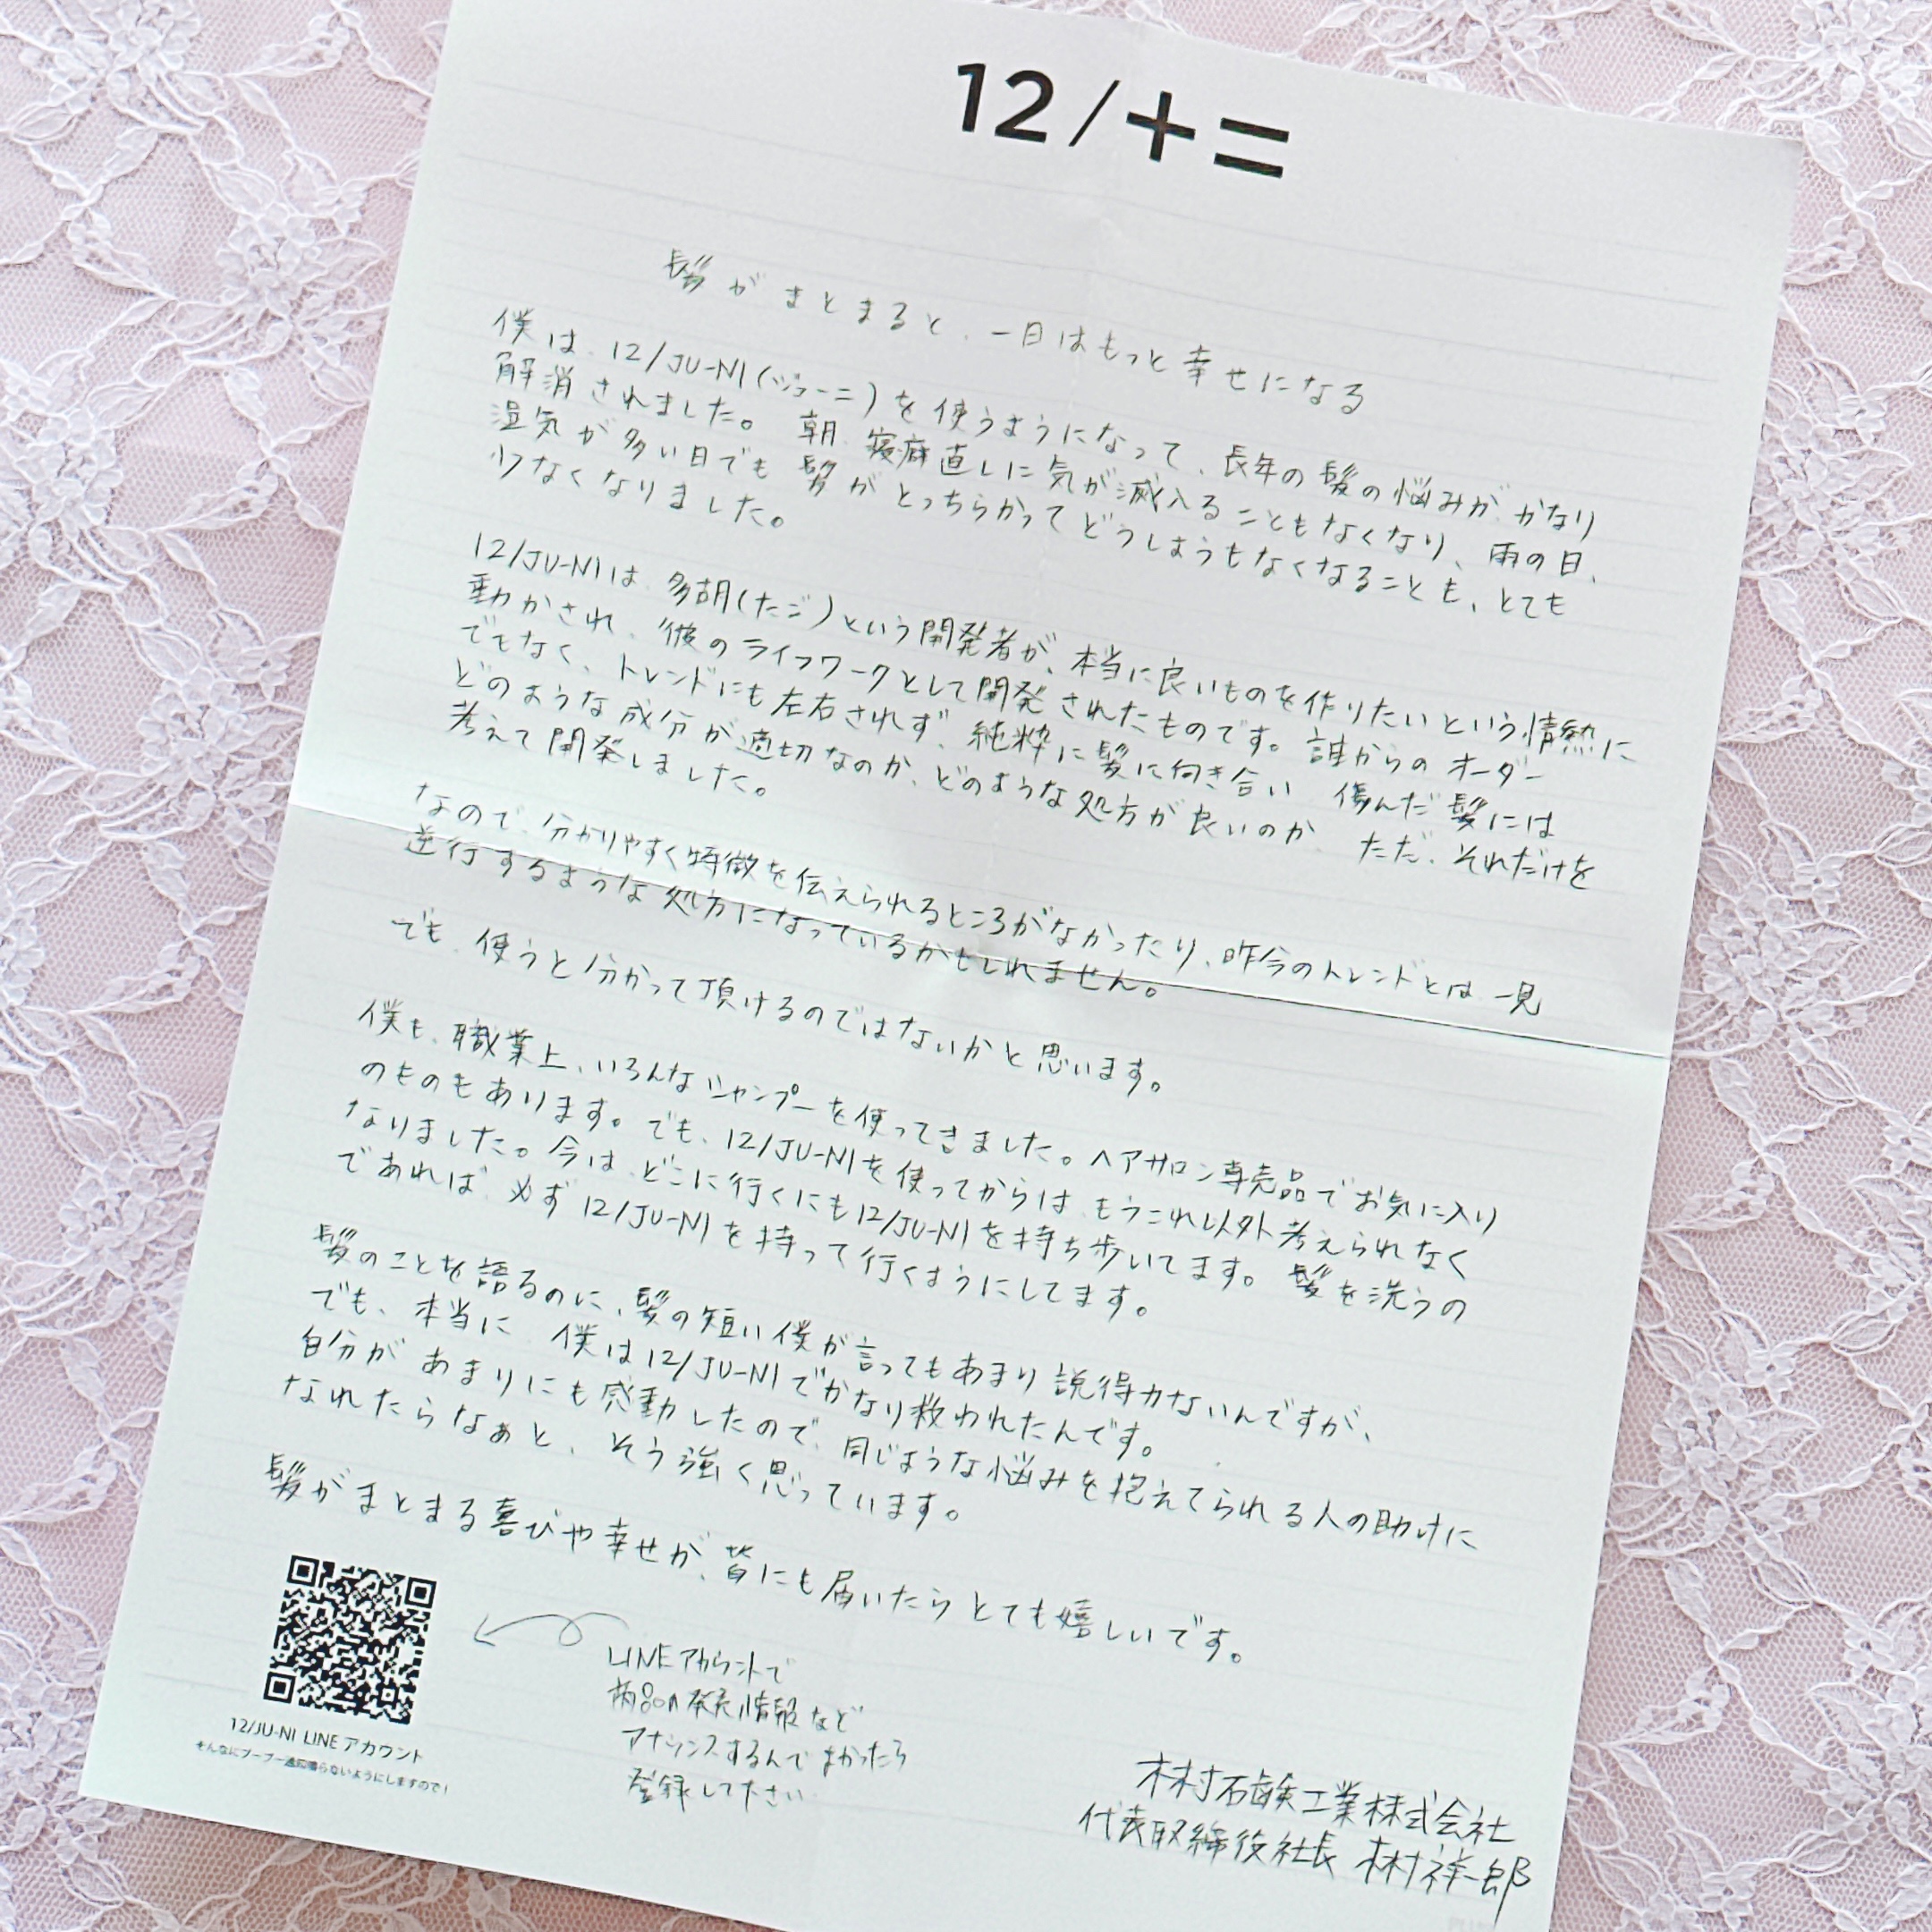 12/+=
髪がまとまると、一日はもっと幸せになる
僕は、12/JU-NI(ジューニ)を使うようになって、長年の髪の悩みが、かなり
解消されました。朝、寝癖直しに気が滅入ることもなくなり、雨の日、
湿気が多い日でも髪がとっちらかってどうしようもなくなることも、とても
少なくなりました。
12/JU-NIは、多胡(たご)という開発者が、本当に良いものを作りたいという情熱に
動かされ、彼のライフワークとして開発されたものです。誰からのオーダー
でもなく、トレンドにも左右されず、純粋に髪に向き合い 傷んだ髪には
どのような成分が適切なのか、どのような処方が良いのか、ただ、それだけを
考えて開発しました。
なので、分かりやすく特徴を伝えられるところがなかったり、昨今のトレンドとは一見
逆行するような処方になっているかもしれません。
でも、使うと分かって頂けるのではないかと思います。
僕も、職業上、いろんなシャンプーを使ってきました。ヘアサロン専売品でお気に入り
のものもあります。でも、12/JU-NIを使ってからは、もうこれ以外考えられなく
なりました。今は、どこに行くにも12/JU-NIを持ち歩いてます。髪を洗うの
であれば、必ず12/JU-NIを持って行くようにしてます。
髪のことを語るのに、髪の短い僕が言ってもあまり説得力ないんですが、
でも、本当に、僕は12/JU-NIでかなり救われたんです。
自分があまりにも感動したので、同じような悩みを抱えてられる人の助けに
なれたらなぁと、そう強く思っています。
髪がまとまる喜びや幸せが、皆にも届いたらとても嬉しいです。
LINEアカウントで
商品の発売情報など
アナウンスするんでよかったら
登録して下さい
12/JU-NI LINEアカウント
そんなにブーブー通知鳴らないようにしますので!
木村石鹸工業株式会社
代表取締役社長 木村祥一郎